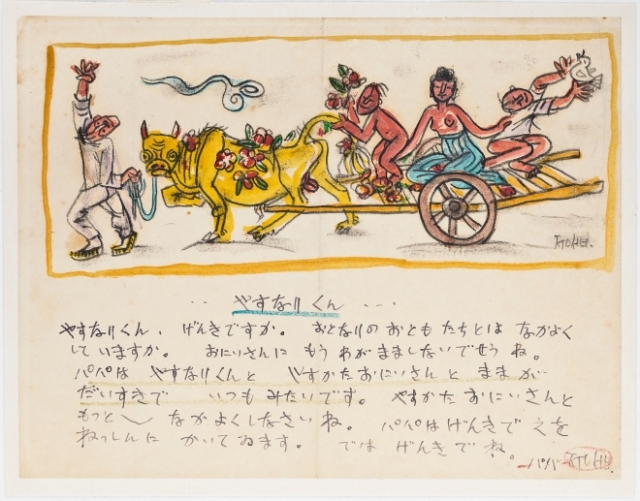 ㅈㅜㅇㅅㅓㅂ.
‥ やすなりくん …
やすなりくん、げんきですか。おとなりの おともたちとは なかよく
して いますか。おにいさんに もう わがまましないでせう ね。
パパは やすなりくんと やすかたおにいさんと ままが
だいすきで いつも みたいです。やすかた おにいさんと
もっと〱 なかよくしなさい ね。パパはげんきで えを
ねっしんに かいてゐます。では げんきで ね。
—パパ— ㅈㅜㅇㅅㅓㅂ